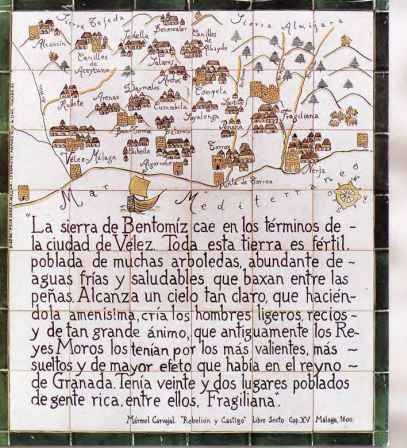 Sierra Tejeda
Sierra Almijara
Alcaucín
Canilles de Aceytuno
Sedella
Salares
Canilles de Albayde
Rubite
Arenas
Daymalos
Corumbila
Competa
Sayalonga
Frigiliana
Vélez-Málaga
Algarrobo
Torrox
Nerja
Mar Mediterráneo
"La sierra de Bentomíz cae en los términos de -
la ciudad de Vélez. Toda esta tierra es fértil,
poblada de muchas arboledas, abundante de -
aguas frías y saludables que baxan entre las
peñas. Alcanza un cielo tan claro, que hacién-
dola amenísima, cría los hombres ligeros, recios -
y de tan grande ánimo, que antiguamente los Re-
yes Moros los tenían por los más valientes, más -
sueltos y de mayor efeto que había en el reyno -
de Granada. Tenía veinte y dos lugares poblados
de gente rica, entre ellos, Fragiliana."
Mármol Carvajal. "Rebelión y Castigo" Libro Sexto Cap. XV Málaga, 1600.